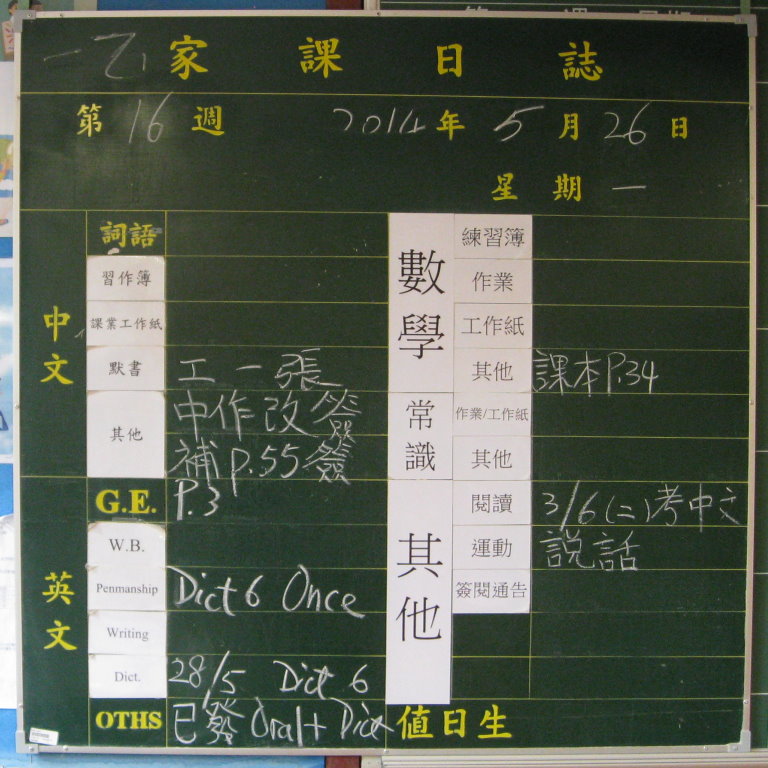 一乙 家課日誌
第 16 週 2014 年 5 月 26 日
星期 一
中文
詞語
習作簿
課業工作紙
默書 工一張
其他 中作改簽
補 P.55 簽
英文
G.E. P.3
W.B.
Penmanship Dict 6 Once
Writing
Dict. 28/5 Dict 6
OTHS 已發 Oral + Dict
數學
練習簿
作業
工作紙
其他 課本P.34
常識
作業/工作紙
其他
其他
閱讀 3/6 (二)考中文
運動 說話
簽閱通告
值日生